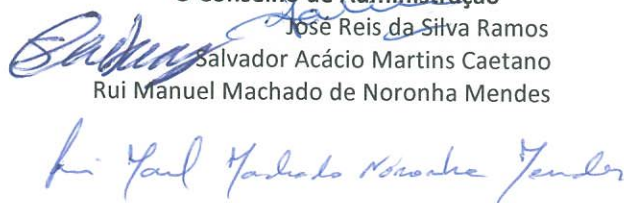 O Conselho de Administração
José Reis da Silva Ramos
Salvador Acácio Martins Caetano
Rui Manuel Machado de Noronha Mendes
Rui Manl Machado Noronha Mendes